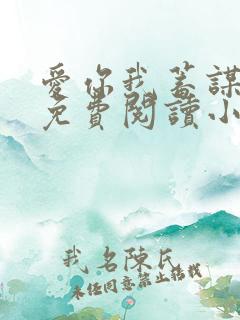 愛你我蓄謀
免費閱讀小
我名陳氏
未經同意禁止搭載